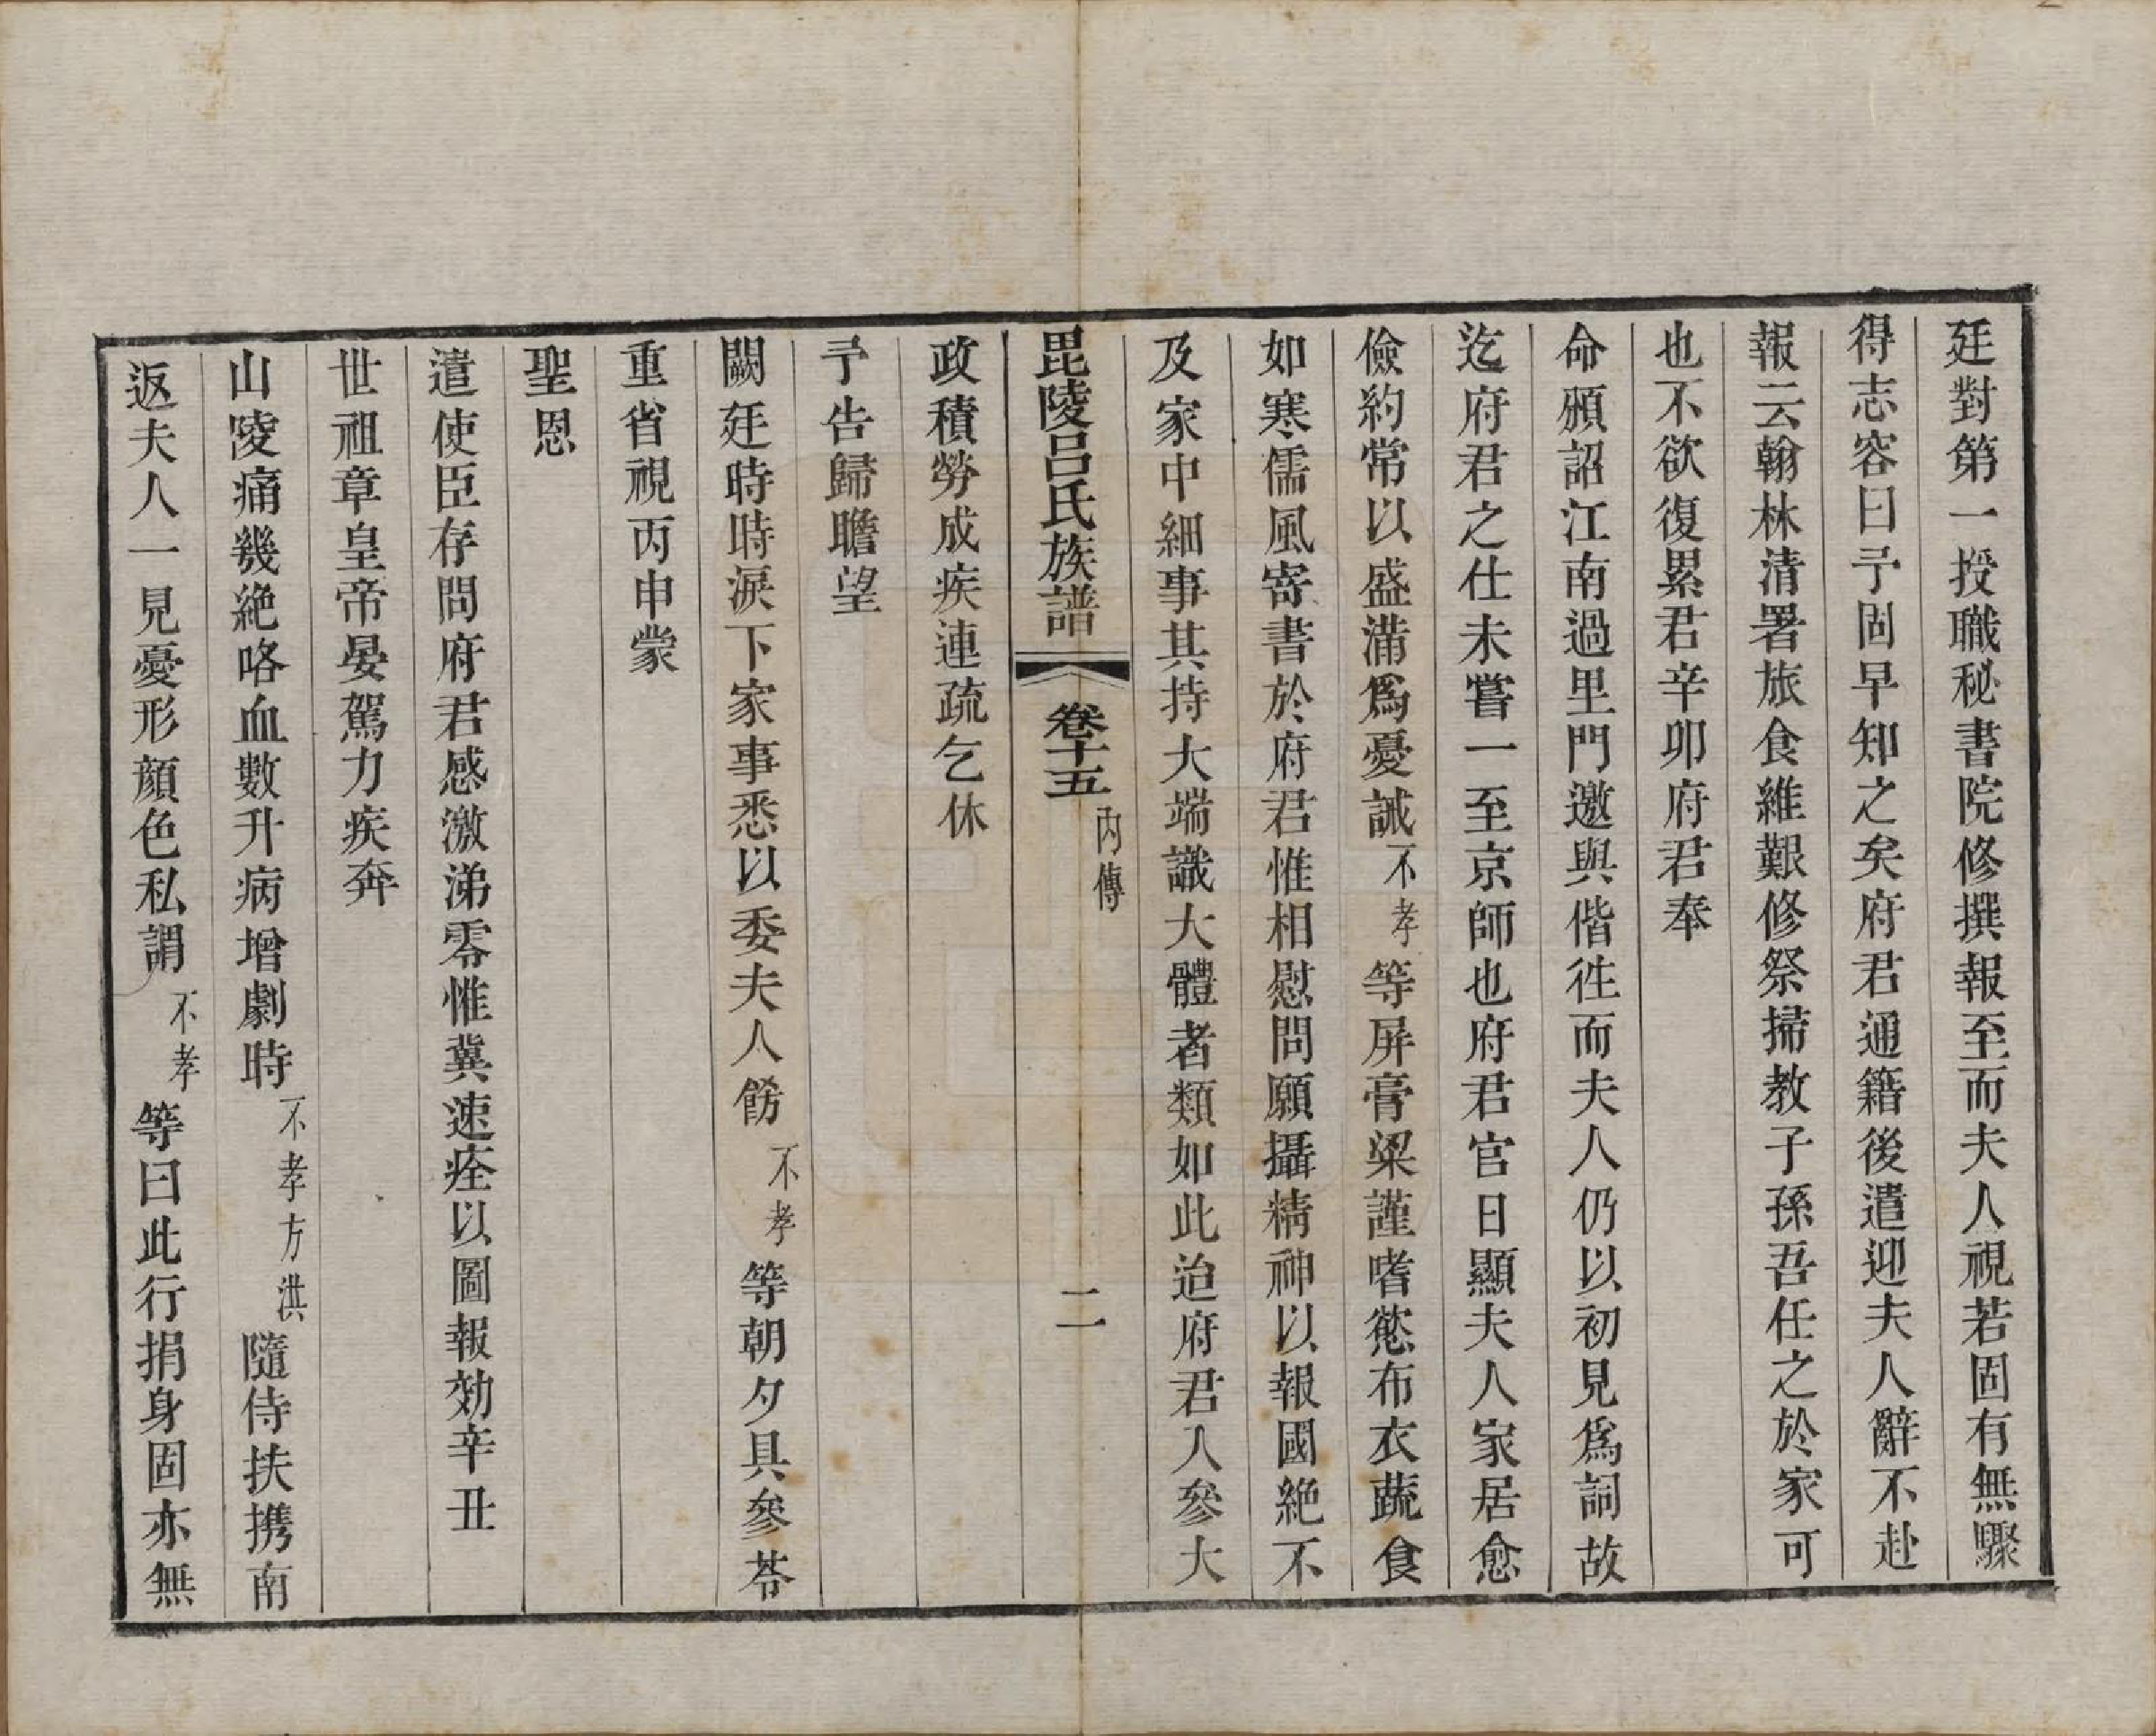 廷對第一授職秘書院修撰報至而夫人視若固有無驟
得志容曰予固早知之矣府君通籍後遣迎夫人辭不赴
報云翰林清署旅食維艱修祭掃教子孫吾任之於家可
也不欲復累君辛卯府君奉
命頒詔江南過里門邀與偕徃而夫人仍以初見爲詞故
迄府君之仕未嘗一至京師也府君官日顯夫人家居愈
儉約常以盛滿爲憂誡不孝等屏膏粱謹嗜慾布衣蔬食
如寒儒風寄書於府君惟相慰問願攝精神以報國絶不
及家中細事其持大端識大體者類如此迨府君入參大
毘陵呂氏族譜 卷十五 內傳 二
政積勞成疾連疏乞休
予告歸瞻望
闕廷時時淚下家事悉以委夫人飭不孝等朝夕具參苓
重省視丙申蒙
聖恩
遣使臣存問府君感激涕零惟冀速痊以圖報効辛丑
世祖章皇帝晏駕力疾奔
山陵痛幾絶咯血數升病增劇時不孝方洪隨侍扶携南
返夫人一見憂形顏色私謂不孝等曰此行捐身固亦無